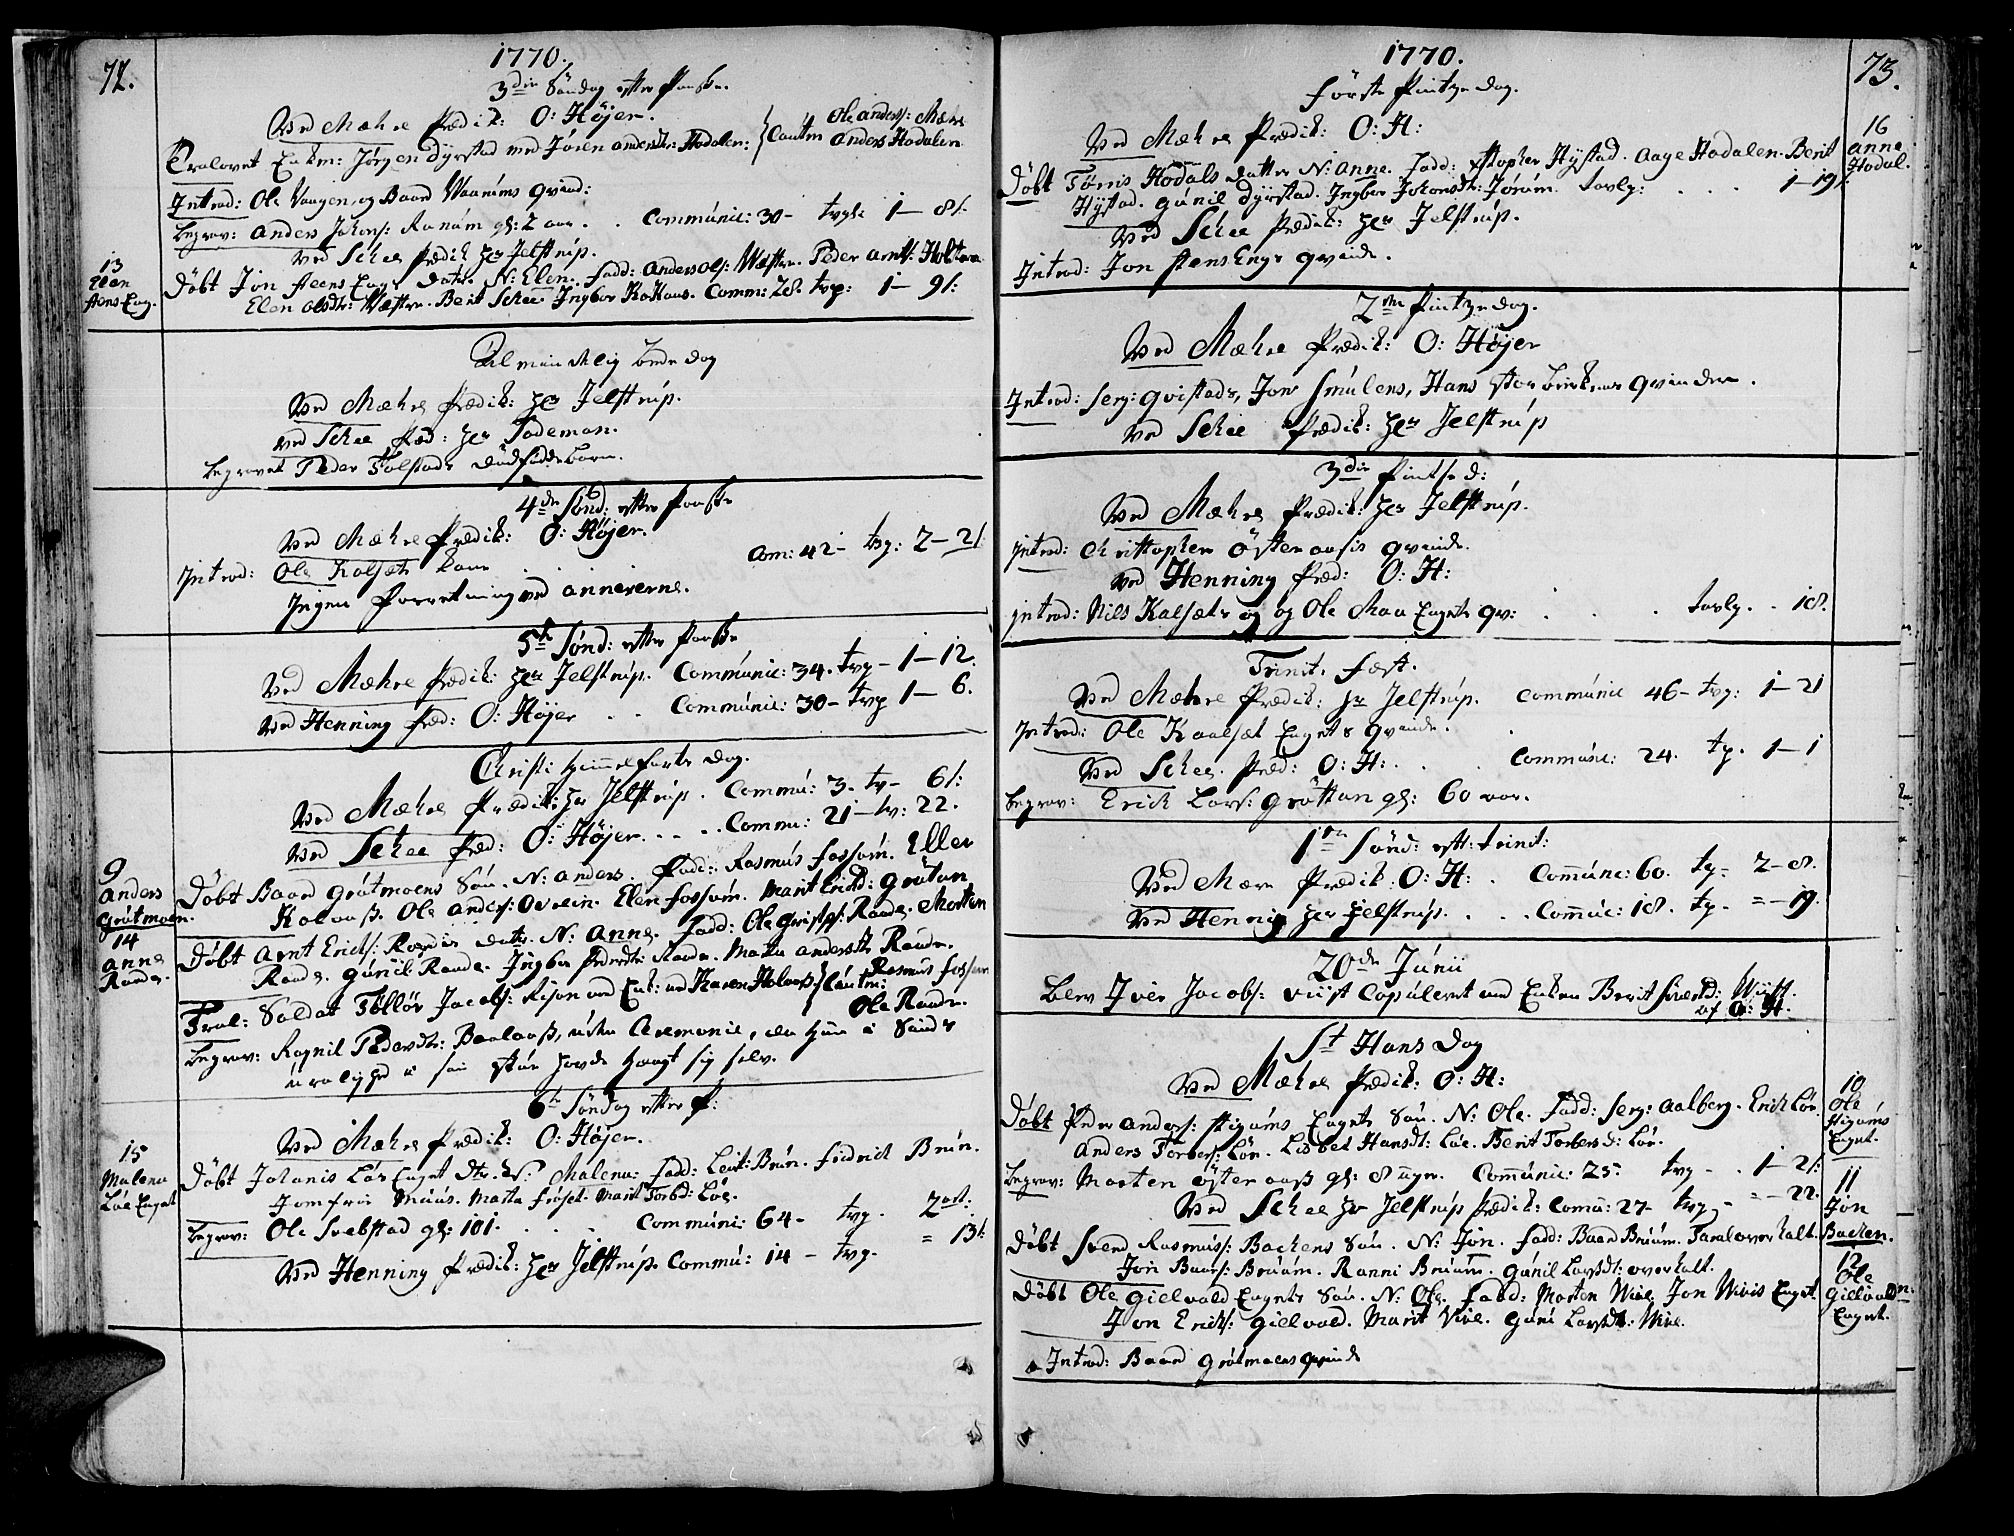 72.
1770.
3die Søndag efter Paaske.
Ved Mæhre Prædik: O: Høyer.
Trolovet Enkm: Jørgen Dyrstad med Jøren Andersdr: Hodalen: Cautm Ole Anders: Mære
Anders Hodalen
Introd: Ole Vaagen, og Baar Vaanums Qvind:
Begrav: Anders Johans: Ranum gl: 2 aar. . Communic: 30 - tvgl: 1 - 8 s:
Ved Schee Prædik Her Jelstrup.
13
Elen
steens Eng.
Døbt Jon steens Engs Datr. N: Elen. Fadd: Anders Ols: Wæstre. Peder Arnts: Holtan
Elen Olsdr: Wæstre. Berit Schee. Ingbor Comm: 28. tvg: 1 - 9 s:
Almindelig Bededag
Ved Mæhre Prædik: Her Jelstrup.
Ved Schee Præd: Her Tødeman.
Begravet Peder Følstads dødfødde Barn.
4de Sønd: efter Paaske
Ved Mæhre Prædik: O: Høyer.
Introd: Ole Kalsæts Kone Com: 42 - tvg: 2 - 2 s
Ingen Forretning ved Annexerne.
5te Sønd: efter Paaske
Ved Mæhre Prædik: Her Jelstrup. Communic: 34. tvg - 1 - 12.
Ved Henning Præd: O: Høyer . . Communic: 30 - tvg 1 - 6.
Christi Himmelfarts Dag.
Ved Mæhre Prædik: Hr Jelstrup. Commu: 3. tv - 6 s:
Ved Schee Præd: O: Høyer. . . . Commu: 21 - tv: 22.
9
Anders
Grøtmoen.
Døbt Baar Grøtmoens Søn. N: Anders. Fadd: Rasmus Fossum. Eller
Kolaas. Ole Anders: Overin. Elen Fossum. Marit Ericsd: Grøtan
14
Anne
Raade.
Døbt Arnt Ericks: Raades Datr. N: Anne. Fadd: Ole Raade. Morten
Raade. Gunil Raade. Ingbor Pedersdr: Raade. Matta Andersdr Raade.
Trol: Soldat Tølløv Jacobs: Rison med Enk: Karen Holaas Cautm: Rasmus Fossum
Ole Raade.
Begrav: Ragnil Pedersdr: Baalaas, uden Ceremonie, da hun i Sinds
urolighed i sin stue havde hængt sig selv.
6te Søndag efter P:
Ved Mæhre Prædik: O: Høyer.
15
Malena
Løe Enget
Døbt Johanis Løe Enget Dtr. N: Malena: Fadd: Leut: Brun. Fridrich Brun.
Jomfrue Muus. Matta Frøset. Marit Torbd: Løe.
Begrav: Ole Svebstad gl: 101. . . Communi: 64 - tvg. 2 ort:
Ved Henning Prædik: Her Jelstrup. Commu: 14 - tvg. = 13 s:
1770.
73.
Første Pintzedag.
Ved Mæhre Prædik: O: H:
16
Anne
Hodal.
Døbt Tørris Hodals Datter N: Anne. Fadd: Hystad. Aage Hodalen. Berit
Hystad. Gunil Dyrstad. Ingbor Johansdr: Jørum. tavlp: . . . 1 - 19 s:
Ved Schee Prædik: Her Jelstrup.
Introd: Jon steens Engs Qvinde.
2den Pintzedag.
Ved Mæhre Prædik: O: Høyer
Introd: Serg: Qvistads, Jon Smulens, Hans Qvinder.
Ved Schee Prædik: Her Jelstrup
3die Pintsed:
Ved Mæhre Prædik: Her Jelstrup.
Introd: Christopher Østeraasis Qvinde.
Ved Henning Præd: O: H:
Introd: Nils Kalsæts og Ole Maa Engets Qv: . . . tavlp. . 18.
Trinit. Fæst.
Ved Mæhre Prædik: Hr Jelstrup. Communic 46 - tvg: 1 - 21
Introd: Ole Kaalsæt Engets Qvinde.
Ved Schee. Præd: O: H: . . Communic: 24. tvg. 1 - 1
Begrav: Erick Lars: Grøttan gl: 60 aar.
1ste Sønd: eft: Trinit:
Ved Mære Prædik: O: H: . Comunic: 60. tvg - 2 - 8.
Ved Henning Her Jelstrup. . . . Comunic: 18. tvg. = - 19.
20de Junii
Blev Iver Jacobs: Viist Copuleret med Enken Berit Siversd: Wiist.
af O: H.
St Hans Dag
Ved Mæhre Prædik: O: H:
10
Ole
Stigums
Enget.
Døbt Peder Anders: Stigums Engets Søn. N: Ole. Fadd: Serg: Aalberg. Erich Løe.
Anders Torbers: Løe. Lisbed Hansdt: Løe. Berit Torbersd: Løe.
Begrav: Morten Østeraas gl: 8 uger. Comunic: 25. tvg - . 1 - 2 s:
Ved Schee Hr Jelstrup Prædik: Comu: 27 - tvg - = - 22.
11
Jon
Backen.
Døbt Svend Rasmuss: Backens Søn. N: Jon. Fadd: Baar Bruum. Overhalt.
Jon Baars: Bruum. Ranni Bruum. Gunil Larsdt: Overhalt.
12
Ole
Gielvold
Enget.
Døbt Ole Gielvold Engets Søn. N: Ole. Fadd: Morten Wive. Jon Wivis Enget.
Jon Ericks: Gielvold. Marit Vive. Guru Larsdt: Wive.
Introd: Baar Grøtmoens Qvinde